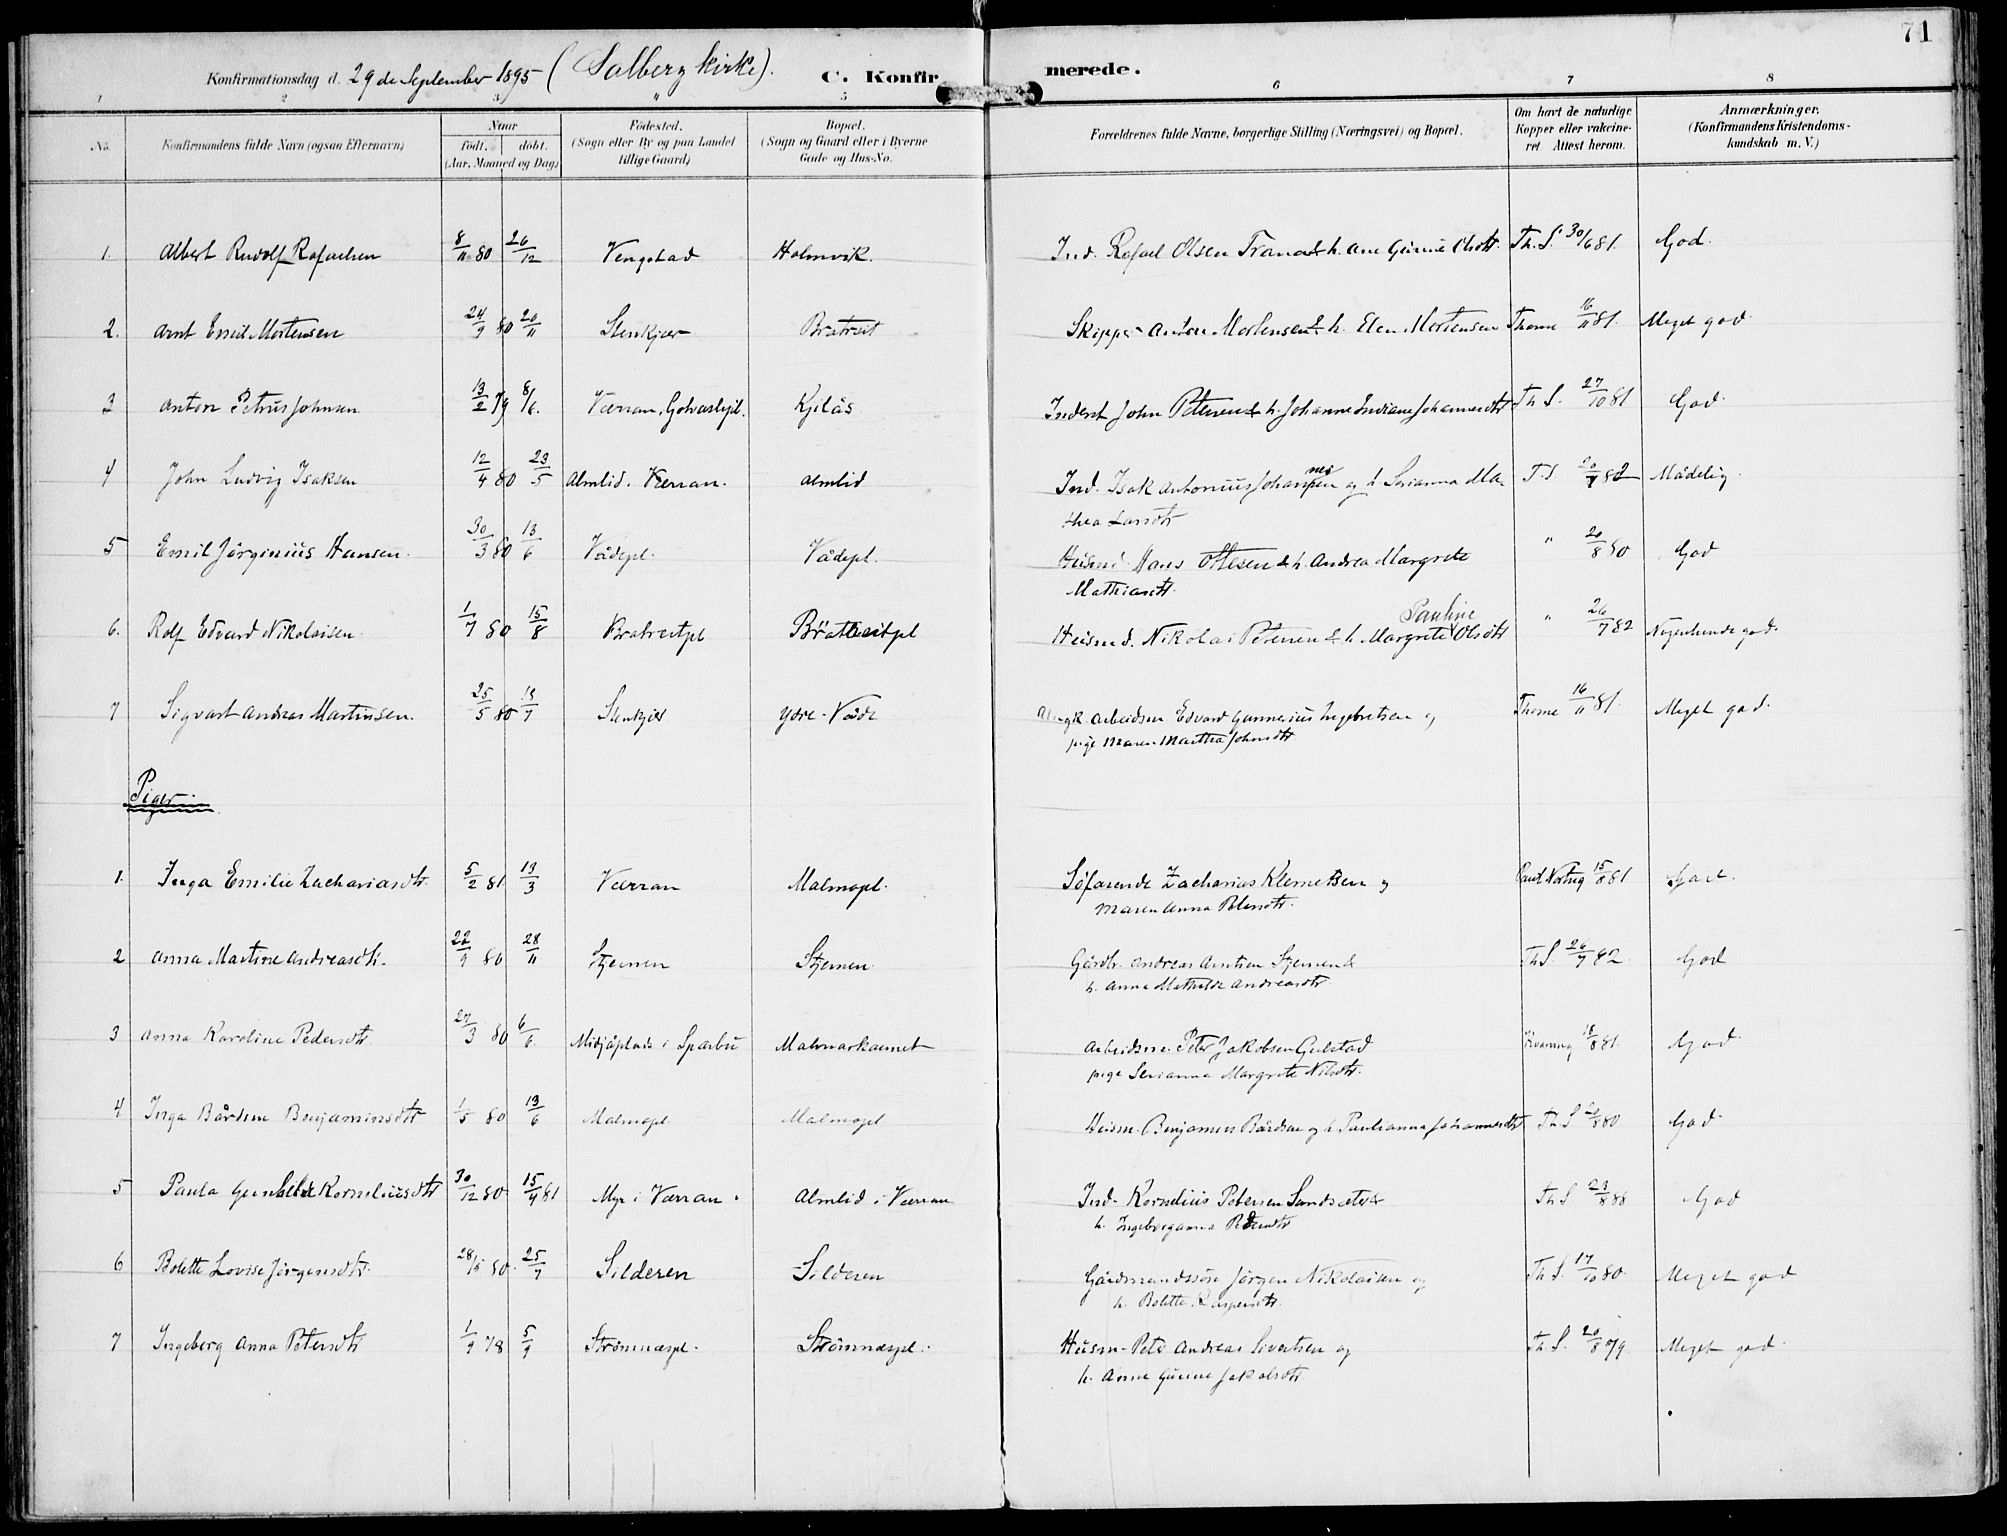 71
Konfirmationsdag d. 29de September 1895 (Salberg kirke). C. Konfirmerede.
1 2 3 " 5 6 7 8
No. Konfirmandens fulde Navn (ogsaa Efternavn) Naar født. døbt. (Aar, Maaned og Dag) Fødested. (Sogn eller By og paa Landet tillige Gaard) Bopæl. (Sogn og Gaard eller i Byerne Gade og Hus-No. Forældrenes fulde Navne, borgerlige Stilling (Næringsvei) og Bopæl. Om havt de naturlige Kopper eller vakcineret. Attest herom. Anmærkninger. (Konfirmandens Kristendomskundskab m. V.)
1. Albert Rudolf Rafaelsen 8/11 80 26/12 Vengstad Holmvik. Ind. Rafael Olsen Trana & h. Ane Olsdtr. Th. S. 30/6 81. God.
2. Arnt Emil Mortensen 24/9 80 20/11 Stenkjær Bratreit Skipper Anton Mortensen & h. Elen Mortensen Thorne 16/11 81. Meget god.
3 Anton Petrus Johnsen 13/2 79 8/6. Værran, Kjelås Inderst John Petersen & h. Johanne Indiane Johannesdtr Th S. 27/10 81 God.
4 John Ludvig Isaksen 12/4 80 23/5 Almlid. Værran. Almlid Ind. Isak Antonius og h Serianna Ma
thea Larsdtr T. S. 20/7 82 Mådelig
5 Emil Jørginius Hansen. 30/3 80 13/6 Vådepl. Vådepl. Husmd. Hans Ottesen & h. Andrea Margrete
Mathiasdtr " 20/8 80 God
6. Rolf Edvard Nikolaisen. 1/7 80 15/8 Bratreitpl Bratreitpl Husmd. Nikolai Petersen & h. Margrete Pauline Olsdtr " 26/7 82 Nogenlunde god.
7 Sigvart Andreas Martinsen. 25/5 80 18/7 Stenkjær Ydre-Våde Ungk. Arbeidsm Edvard Gunnerius Ingebretsen og
pige Maren Martha Johnsdtr Thorne 16/11 81. Meget god.
Piger.
1. Inga Emilie Zachariasdtr. 5/2 81. 13/3 Værran Malmopl. Søfarende Zacharias Klemetsen og
Maren Anna Petersdtr. 15/8 81 God.
2 Anna Martine Andreasdtr. 22/9 80 28/11 Stjernen Stjernen Gårdbr. Andreas Arntsen Stjernen &
h. Anna Mathilde Andreasdtr. Th S 26/7 82. God
3 Anna Karoline Pedersdtr. 27/3 80 6/6. i Sparbu Arbeidsm. Peter Jakobsen
pige Serianna Margrete Nilsdtr. 18/8 81. God
4 Inga Bårdine Benjaminsdtr 1/5 80 13/6 Malmopl Malmopl Husm. Benjamin Bårdsen og h. Paulianna Johannesdtr Th S 20/8 80 God
5 Paula Gunhild Korneliusdtr 30/12 80 15/4 81 Myr i Værran. Almlid i Værran Ind. Kornelius Petersen Sandsæter
h. Ingeborganna Pedersdtr Th S 23/8 88 God
6 Bolette Lovise Jørgensdtr. 28/5 80. 25/7 Silderen Silderen Gårdmandssøn Jørgen Nikolaisen og
h. Bolette Kaspersdtr. Th S. 17/10 80 Meget god
7 Ingeborg Anna Petersdtr 1/9 78 5/9 Strømnæspl. Strømnæspl. Husm. Peter Andreas Sivertsen og
h. Anne Jakobsdtr. Th. S. 20/8 79 Meget god.